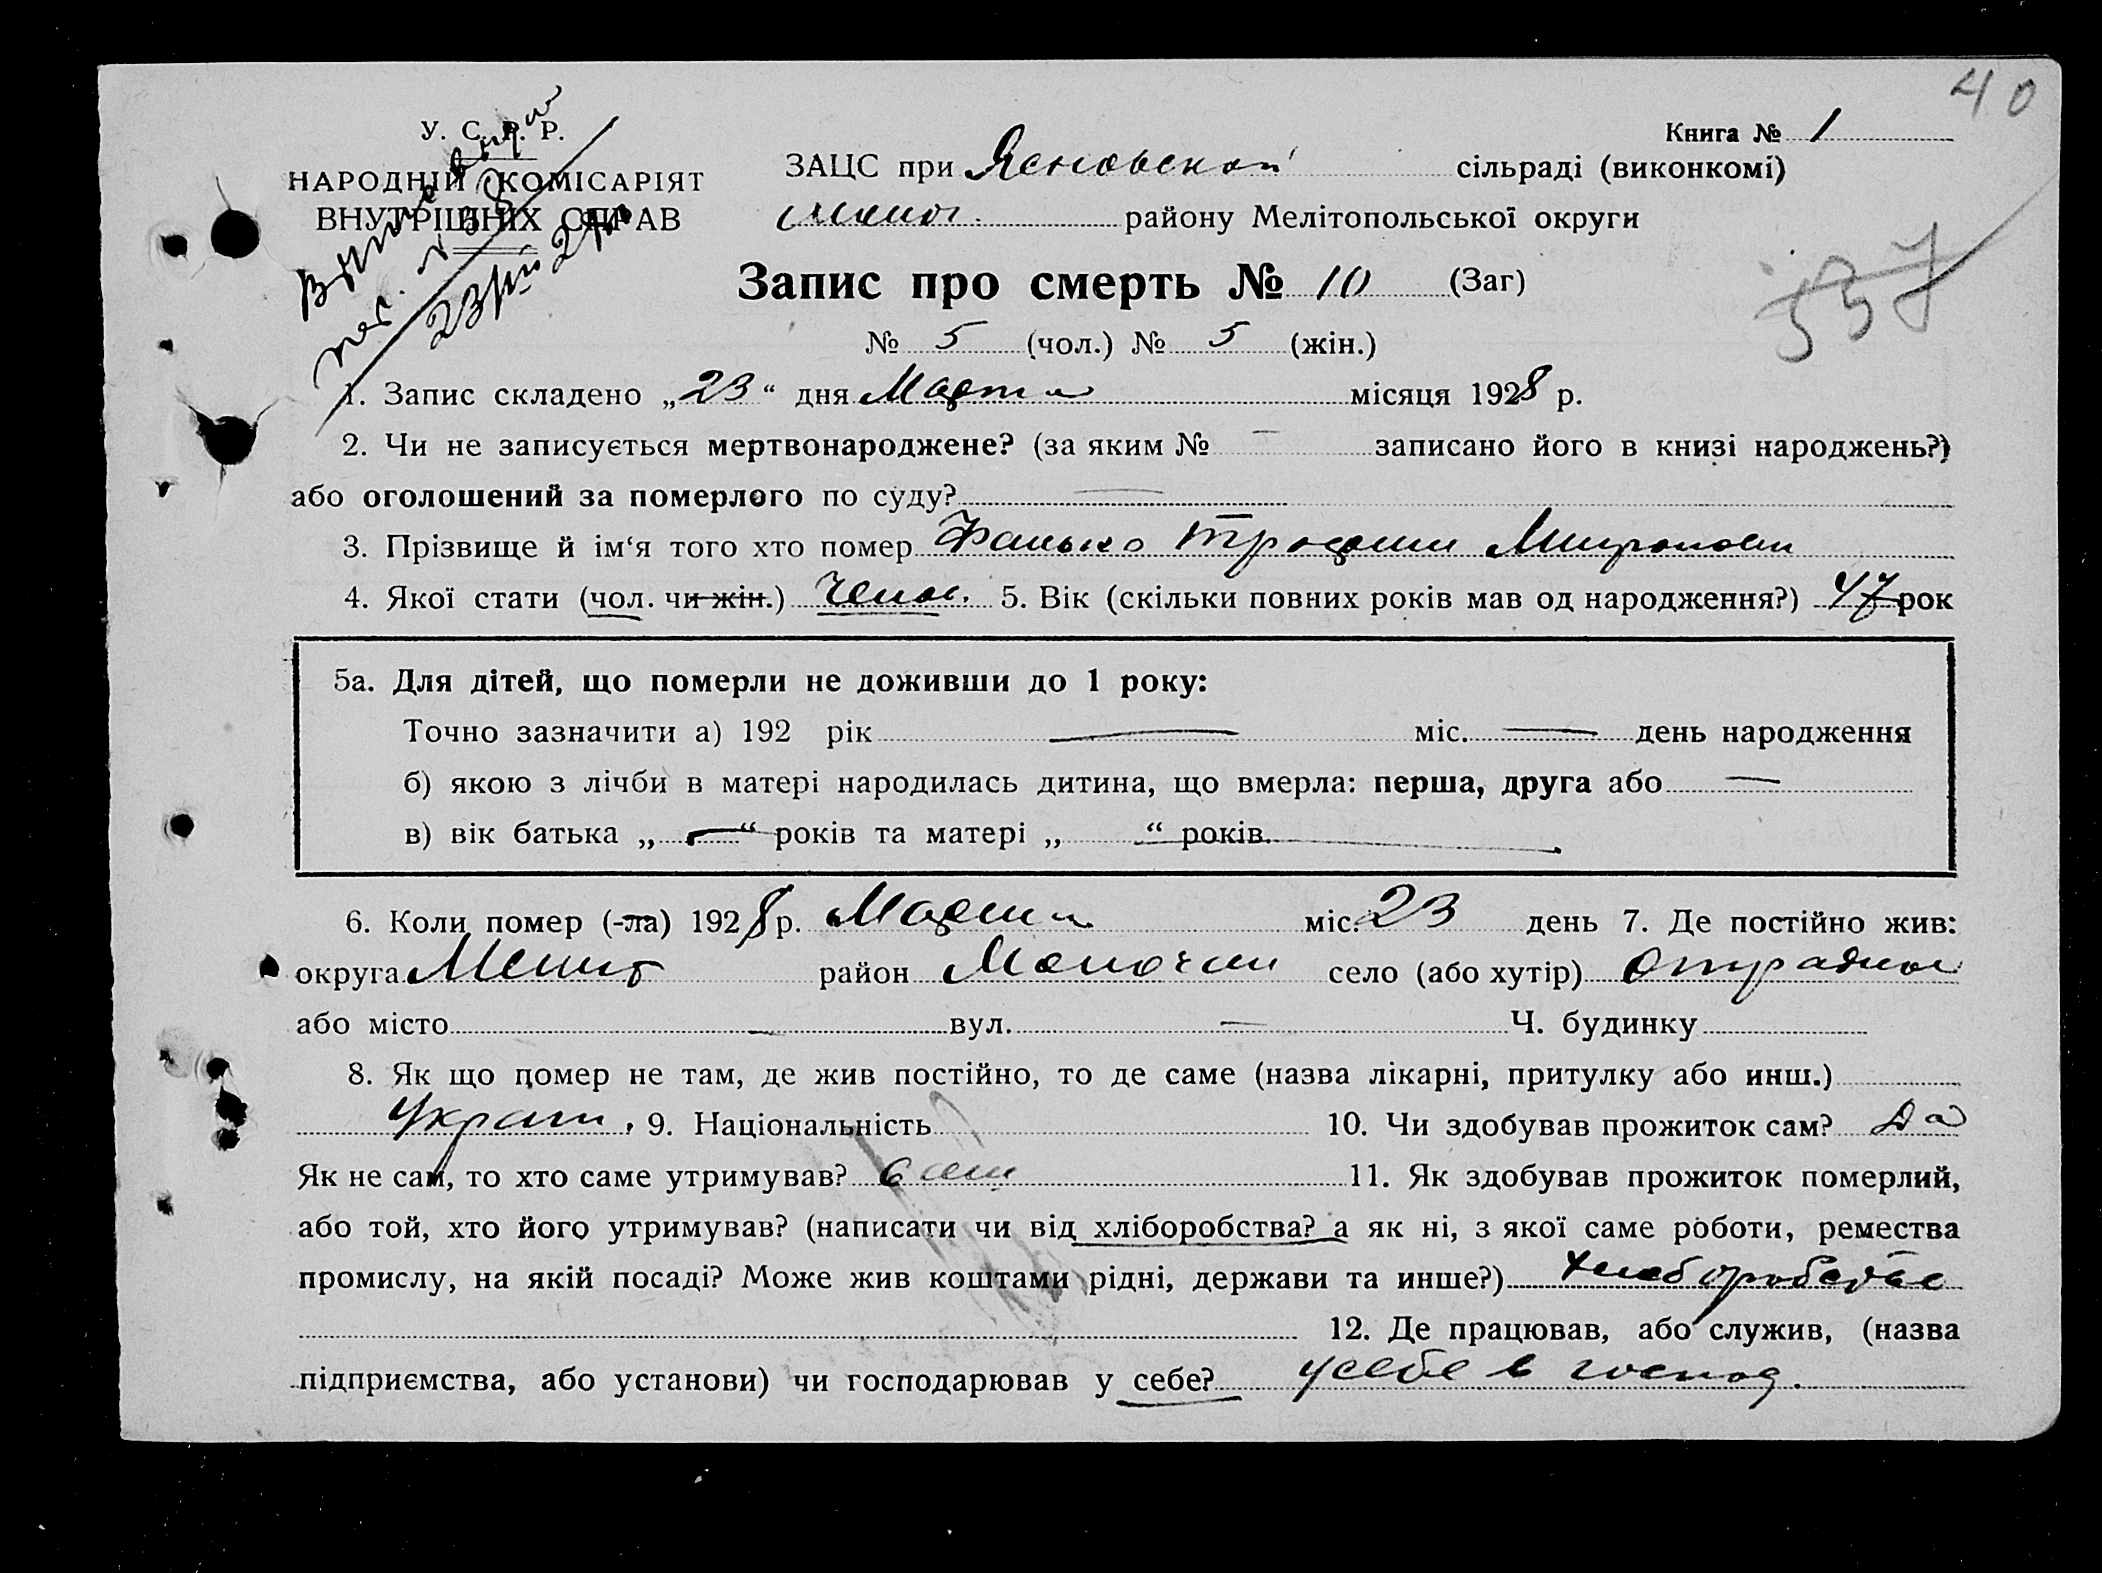 40
У. С. Р. Р.
Книга № 1
НАРОДНІЙ КОМІСАРІЯТ
ВНУТРІШНІХ СПРАВ
ЗАЦС при Ясновской сільраді (виконкомі)
Молоч. району Мелітопольської округи
Запис про смерть № 10 (Заг)
557
№ 5 (чол.) № 5 (жін.)
1. Запис складено „23“ дня Марта місяця 1928 р.
2. Чи не записується мертвонароджене? (за яким № — записано його в книзі народжень?)
або оголошений за померлого по суду? —
3. Прізвище й ім‘я того хто помер
4. Якої стати (чол. чи жін.) 5. Вік (скільки повних років мав од народження?) 47 рок
5а. Для дітей, що померли не доживши до 1 року:
Точно зазначити а) 192 рік — міс. — день народження
б) якою з лічби в матері народилась дитина, що вмерла: перша, друга або —
в) вік батька „ — “ років та матері „ “ років
6. Коли помер (-ла) 1928 р. Марта міс. 23 день 7. Де постійно жив:
округа Мелит район Молочан село (або хутір) Отрадное
або місто — вул. — Ч. будинку
8. Як що помер не там, де жив постійно, то де саме (назва лікарні, притулку або инш.)
Украин, 9. Національність 10. Чи здобував прожиток сам? Да
Як не сам, то хто саме утримував? сам 11. Як здобував прожиток померлий,
або той, хто його утримував? (написати чи від хліборобства? а як ні, з якої саме роботи, ремества
промислу, на якій посаді? Може жив коштами рідні, держави та инше?)
12. Де працював, або служив, (назва
підприємства, або установи) чи господарював у себе? у себе в господ.